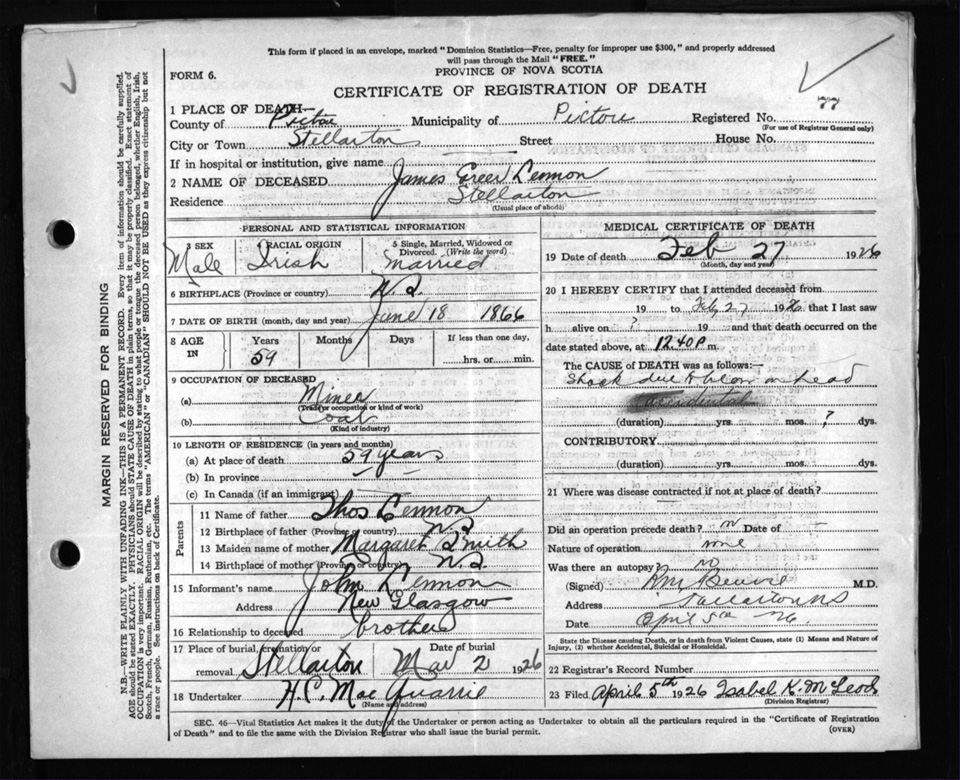 This form if placed in an envelope, marked "Dominion Statistics—Free, penalty for improper use $300," and properly addressed
will pass through the Mail "FREE."
PROVINCE OF NOVA SCOTIA
FORM 6.
CERTIFICATE OF REGISTRATION OF DEATH
77
1 PLACE OF DEATH—
County of Pictou Municipality of Pictou Registered No.
(For use of Registrar General only)
City or Town Stellarton Street House No.
If in hospital or institution, give name
2 NAME OF DECEASED James Greer Lennon
Residence Stellarton
(Usual place of abode)
PERSONAL AND STATISTICAL INFORMATION
3 SEX Male
4 RACIAL ORIGIN Irish
5 Single, Married, Widowed or Divorced. (Write the word) Married
6 BIRTHPLACE (Province or country) N.S.
7 DATE OF BIRTH (month, day and year) June 18 1866
8 AGE IN Years 59 Months Days If less than one day, hrs. or min.
9 OCCUPATION OF DECEASED
(a) Miner
(Trade or occupation or kind of work)
(b) Coal
(Kind of industry)
10 LENGTH OF RESIDENCE (in years and months)
(a) At place of death 59 years
(b) In province "
(c) In Canada (if an immigrant)
Parents
11 Name of father Thos Lennon
12 Birthplace of father (Province or country) N.S
13 Maiden name of mother Margaret Smith
14 Birthplace of mother (Province or country) N.S
15 Informant's name John Lennon
Address New Glasgow
16 Relationship to deceased brother
17 Place of burial, cremation or removal Stellarton Date of burial Mar 2 1926
18 Undertaker H.C. Mac Quarrie
(Name and address)
MEDICAL CERTIFICATE OF DEATH
19 Date of death Feb 27 1926
(Month, day and year)
20 I HEREBY CERTIFY that I attended deceased from
19 to Feb 27 1926 that I last saw
h alive on ? 19 and that death occurred on
date stated above, at 12.40 P m.
The CAUSE of DEATH was as follows:—
Shock due to blow on head
accidental
(duration) yrs. mos. ? dys.
CONTRIBUTORY
(duration) yrs. mos. dys.
21 Where was disease contracted if not at place of death?
Did an operation precede death? no Date of
Nature of operation none
Was there an autopsy? no
(Signed) M.D.
Address Stellarton NS
Date April 5th 26
State the Disease causing Death, or in death from Violent Causes, state (1) Means and Nature of
Injury, (2) whether Accidental, Suicidal or Homicidal.
22 Registrar's Record Number
23 Filed April 5th 1926 Isabel K. McLeod
(Division Registrar)
SEC. 46—Vital Statistics Act makes it the duty of the Undertaker or person acting as Undertaker to obtain all the particulars required in the "Certificate of Registration
of Death" and to file the same with the Division Registrar who shall issue the burial permit.
(OVER)
MARGIN RESERVED FOR BINDING
N.B.—WRITE PLAINLY WITH UNFADING INK—THIS IS A PERMANENT RECORD. Every item of information should be carefully supplied.
AGE should be stated EXACTLY. PHYSICIANS should STATE CAUSE OF DEATH in plain terms, so that it may be properly classified. Exact statement of
OCCUPATION is very important. RACIAL ORIGIN will be described by stating to what people or tongue the deceased person belonged, whether English, Irish,
Scotch, French, German, Russian, Ruthenian, etc. The terms "AMERICAN" or "CANADIAN" SHOULD NOT BE USED as they express citizenship but not
a race or people. See instructions on back of Certificate.